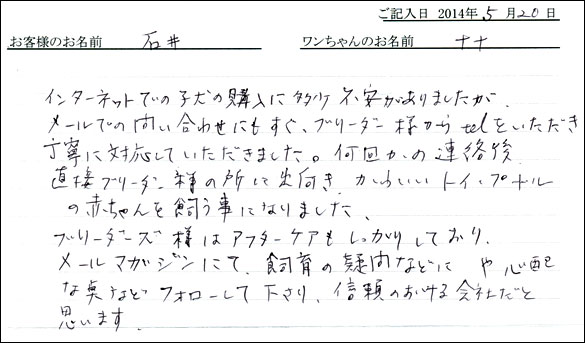 ご記入日 2014年 5 月 20 日
お客様のお名前 石井 ワンちゃんのお名前 ナナ
インターネットでの子犬の購入に多少 不安がありましたが、
メールでの問い合わせにもすぐ、ブリーダー様からtelをいただき
丁寧に対応していただきました。何回かの連絡後
直接ブリーダー様の所に出向き、かわいいトイ・プードル
の赤ちゃんを飼う事になりました。
ブリーダーズ様はアフターケアもしっかりしており、
メールマガジンにて、飼育の疑問などに や 心配
な点などフォローして下さり、信頼のおける会社だと
思います。